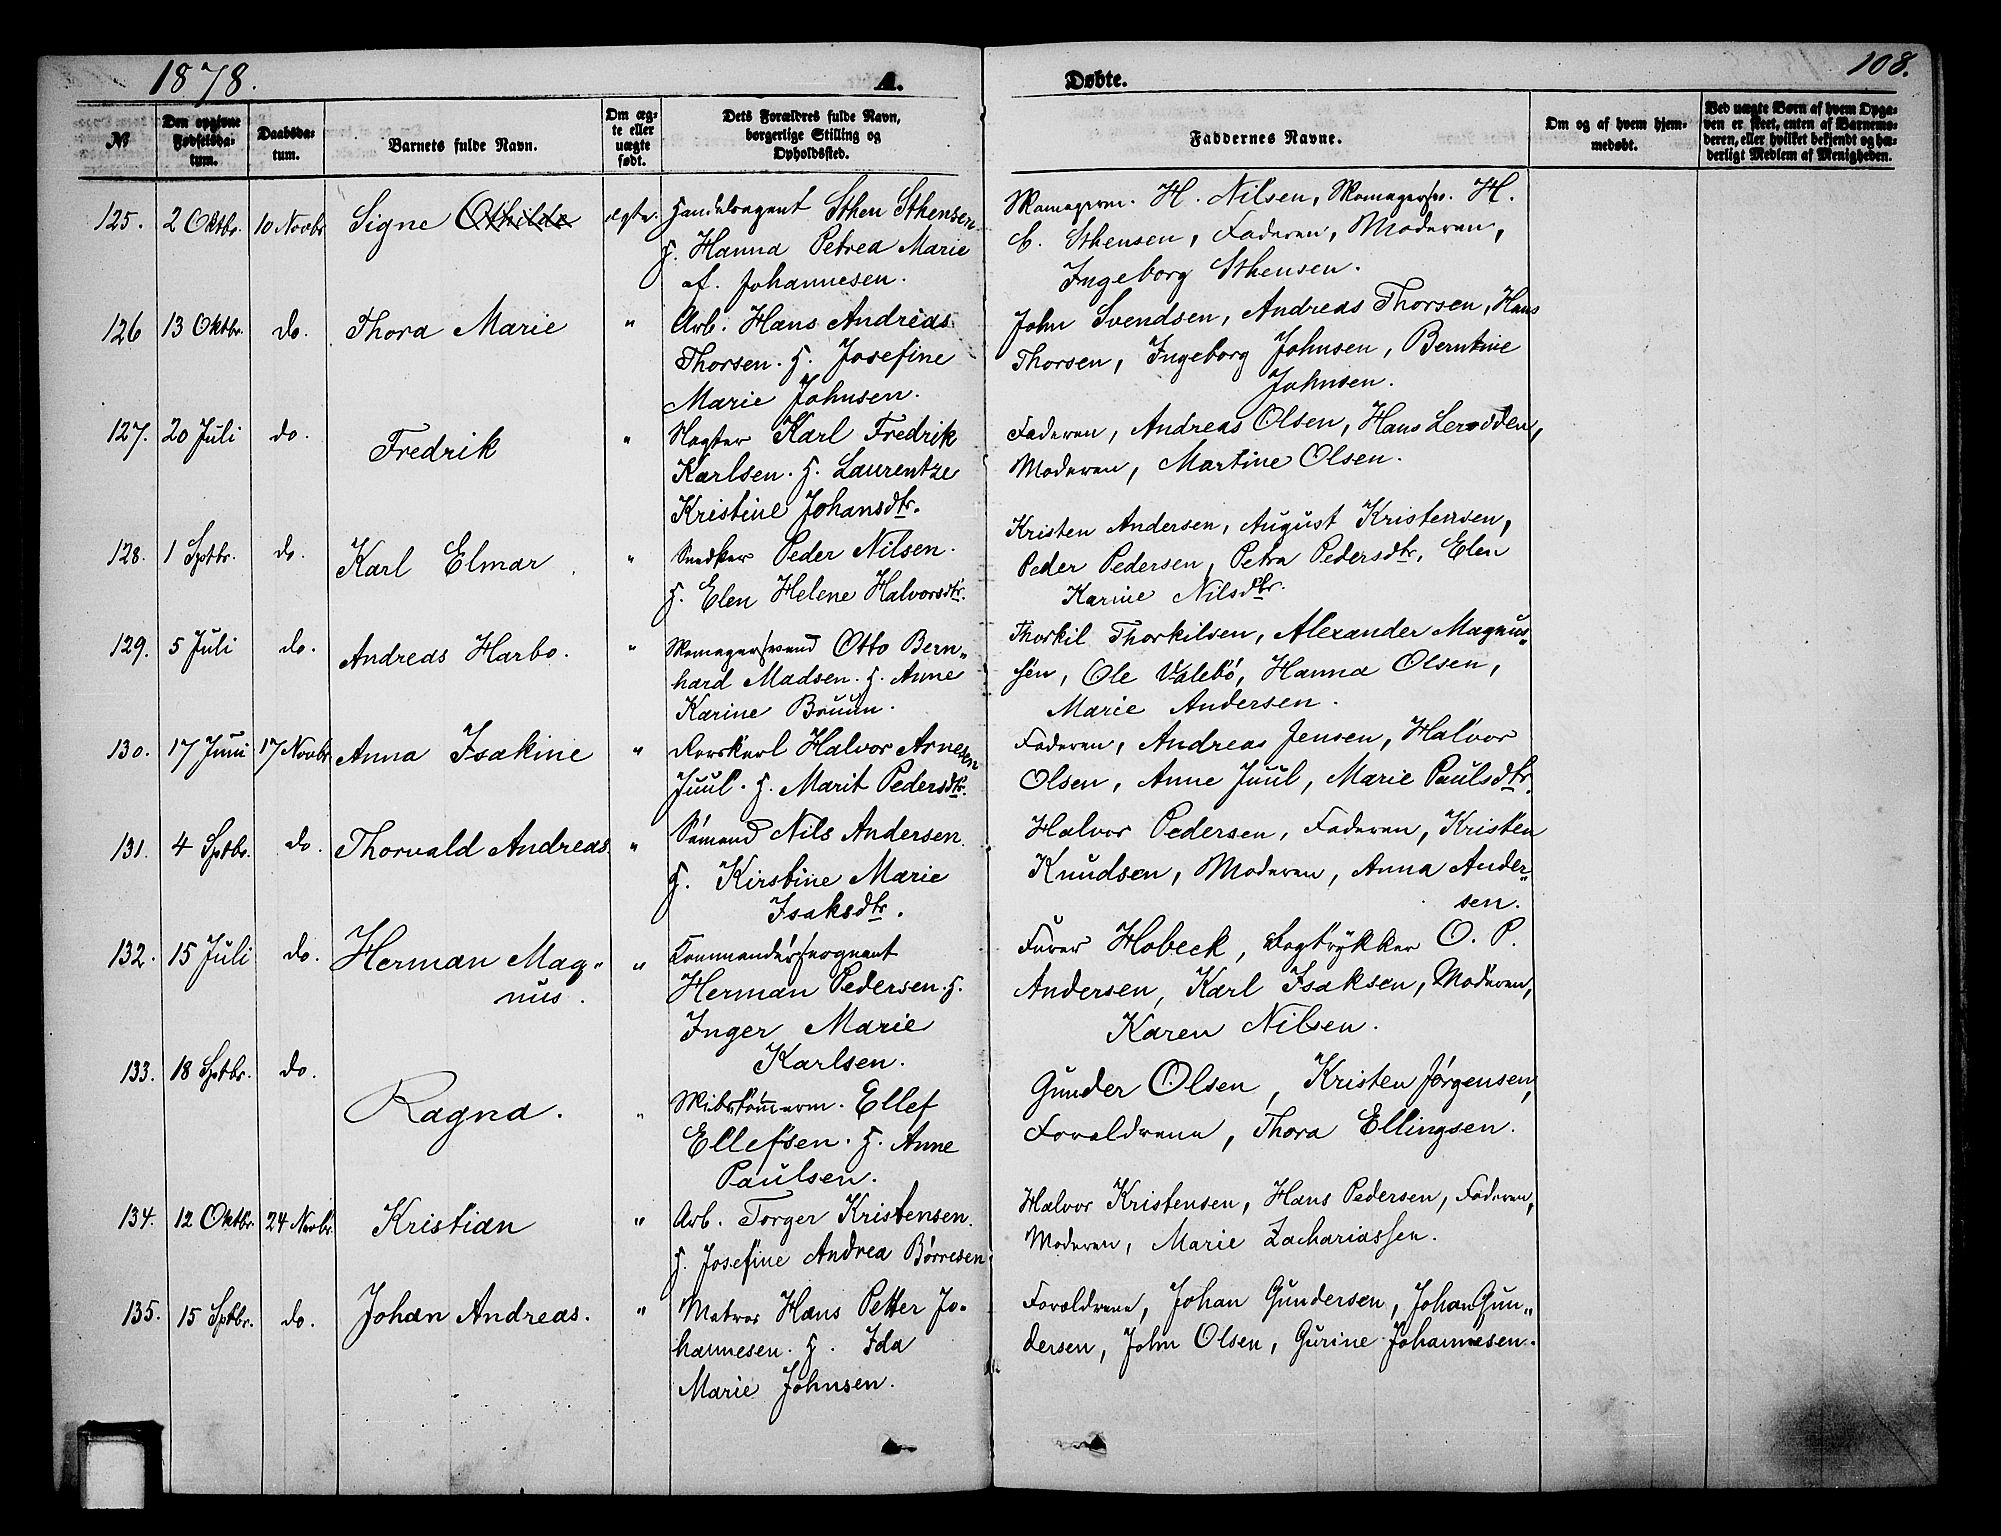 1878. A. Døbte. 108.
№
Den opgivne Fødselsdatum.
Daabsdatum.
Barnets fulde Navn.
Om ægte eller uægte født.
Dets Forældres fulde Navn, borgerlige Stilling og Opholdssted.
Faddernes Navne.
Om og af hvem hjemmedøbt.
Ved uægte Børn af hvem Opgaven er skeet, enten af Barnemoderen, eller hvilket bekjendt og hæderligt Medlem af Menigheden.
125. 2 Oktbr. 10 Novbr Signe Othilde ægte. Handelsagent Sthen Sthensen
H. Hanna Petrea Marie
af. Johannesen.
Skomagerm. H. Nilsen, H.
C. Sthensen, Faderen, Moderen,
Ingeborg Sthensen.
126 13 Oktbr. do. Thora Marie " Arb. Hans Andreas
Thorsen. H. Josefine
Marie Johnsen.
John Svendsen, Andreas Thorsen, Hans
Thorsen, Ingeborg Johnsen, Berntine
Johnsen.
127. 20 Juli do. Fredrik " Slagter Karl Fredrik
Karlsen. H. Laurentze
Kristine Johansdtr.
Faderen, Andreas Olsen, Hans
Moderen, Martine Olsen.
128. 1 Sptbr. do. Karl Elmar " Snedker Peder Nilsen.
H. Elen Helene Halvorsdtr.
Kristen Andersen, August Kristensen,
Peder Pedersen, Petra Pedersdtr, Elen
Karine Nilsdtr.
129. 5 Juli do. Andreas Harbo. " Skomagersvend Otto Bern„
hard Madsen. H. Anne
Karine Bruun.
Thorkil Thorkilsen, Alexander Magnus„
sen, Ole Valebø, Hanna Olsen,
Marie Andersen.
130. 17 Juni 17 Novbr Anna Isakine " Rorskarl Halvor Arnesen
Juul. H. Marit Pedersdtr.
Faderen, Andreas Jensen, Halvor
Olsen, Anne Juul, Marie Paulsdtr.
131. 4 Sptbr. do. Thorvald Andreas. " Sømand Nils Andersen.
H. Kirstine Marie
Isaksdtr.
Halvor Pedersen, Faderen, Kristen
Knudsen, Moderen, Anna Ander„
sen.
132. 15 Juli do. Herman Mag„
nus. " Kommandersergeant
Herman Pedersen. H.
Inger Marie
Karlsen.
Furer Hobeck, Bogtrykker O. P.
Andersen, Karl Isaksen, Moderen,
Karen Nilsen.
133. 18 Sptbr. do.
Ragna. " Skibstømerm. Ellef
Ellefsen. H. Anne
Paulsen.
Gunder Olsen, Kristen Jørgensen,
Forældrene, Thora Ellingsen.
134. 12 Oktbr. 24 Novbr. Kristian " Arb. Torger Kristensen.
H. Josefine Andrea Børresen.
Halvor Kristensen, Hans Pedersen, Faderen,
Moderen, Marie Zachariassen.
135. 15 Sptbr. do. Johan Andreas. " Matros Hans Petter Jo„
hannesen. H. Ida
Marie Johnsen.
Forældrene, Johan Gundersen, Johan Gun„
dersen, John Olsen, Gurine Johannesen.